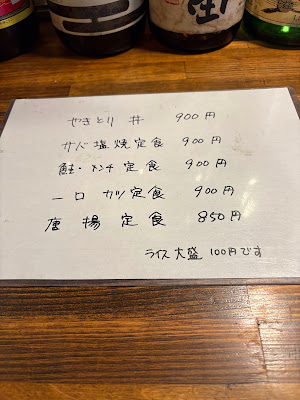 やきとり丼 900円
サバ塩焼定食 900円
鮭・メンチ定食 900円
一口カツ定食 900円
唐揚定食 850円
ライス大盛 100円です